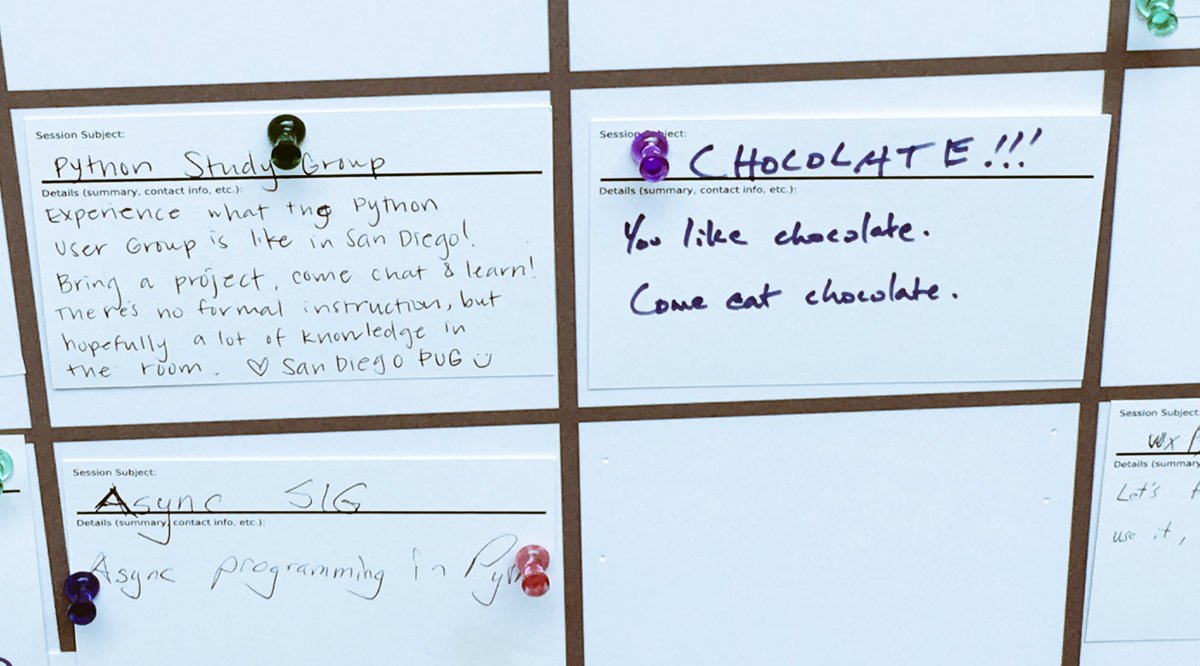 Session Subject:
Python Study Group
Details (summary, contact info, etc.):
Experience what the Python
User Group is like in San Diego!
Bring a project, come chat & learn!
There's no formal instruction, but
hopefully a lot of knowledge in
the room. ♡ San Diego PUG
Session Subject:
CHOCOLATE!!!
Details (summary, contact info, etc.):
You like chocolate.
Come eat chocolate.
Session Subject:
Async SIG
Details (summary, contact info, etc.):
Async programming in
Session Subject:
wx
Details (summary
Let's
use it,